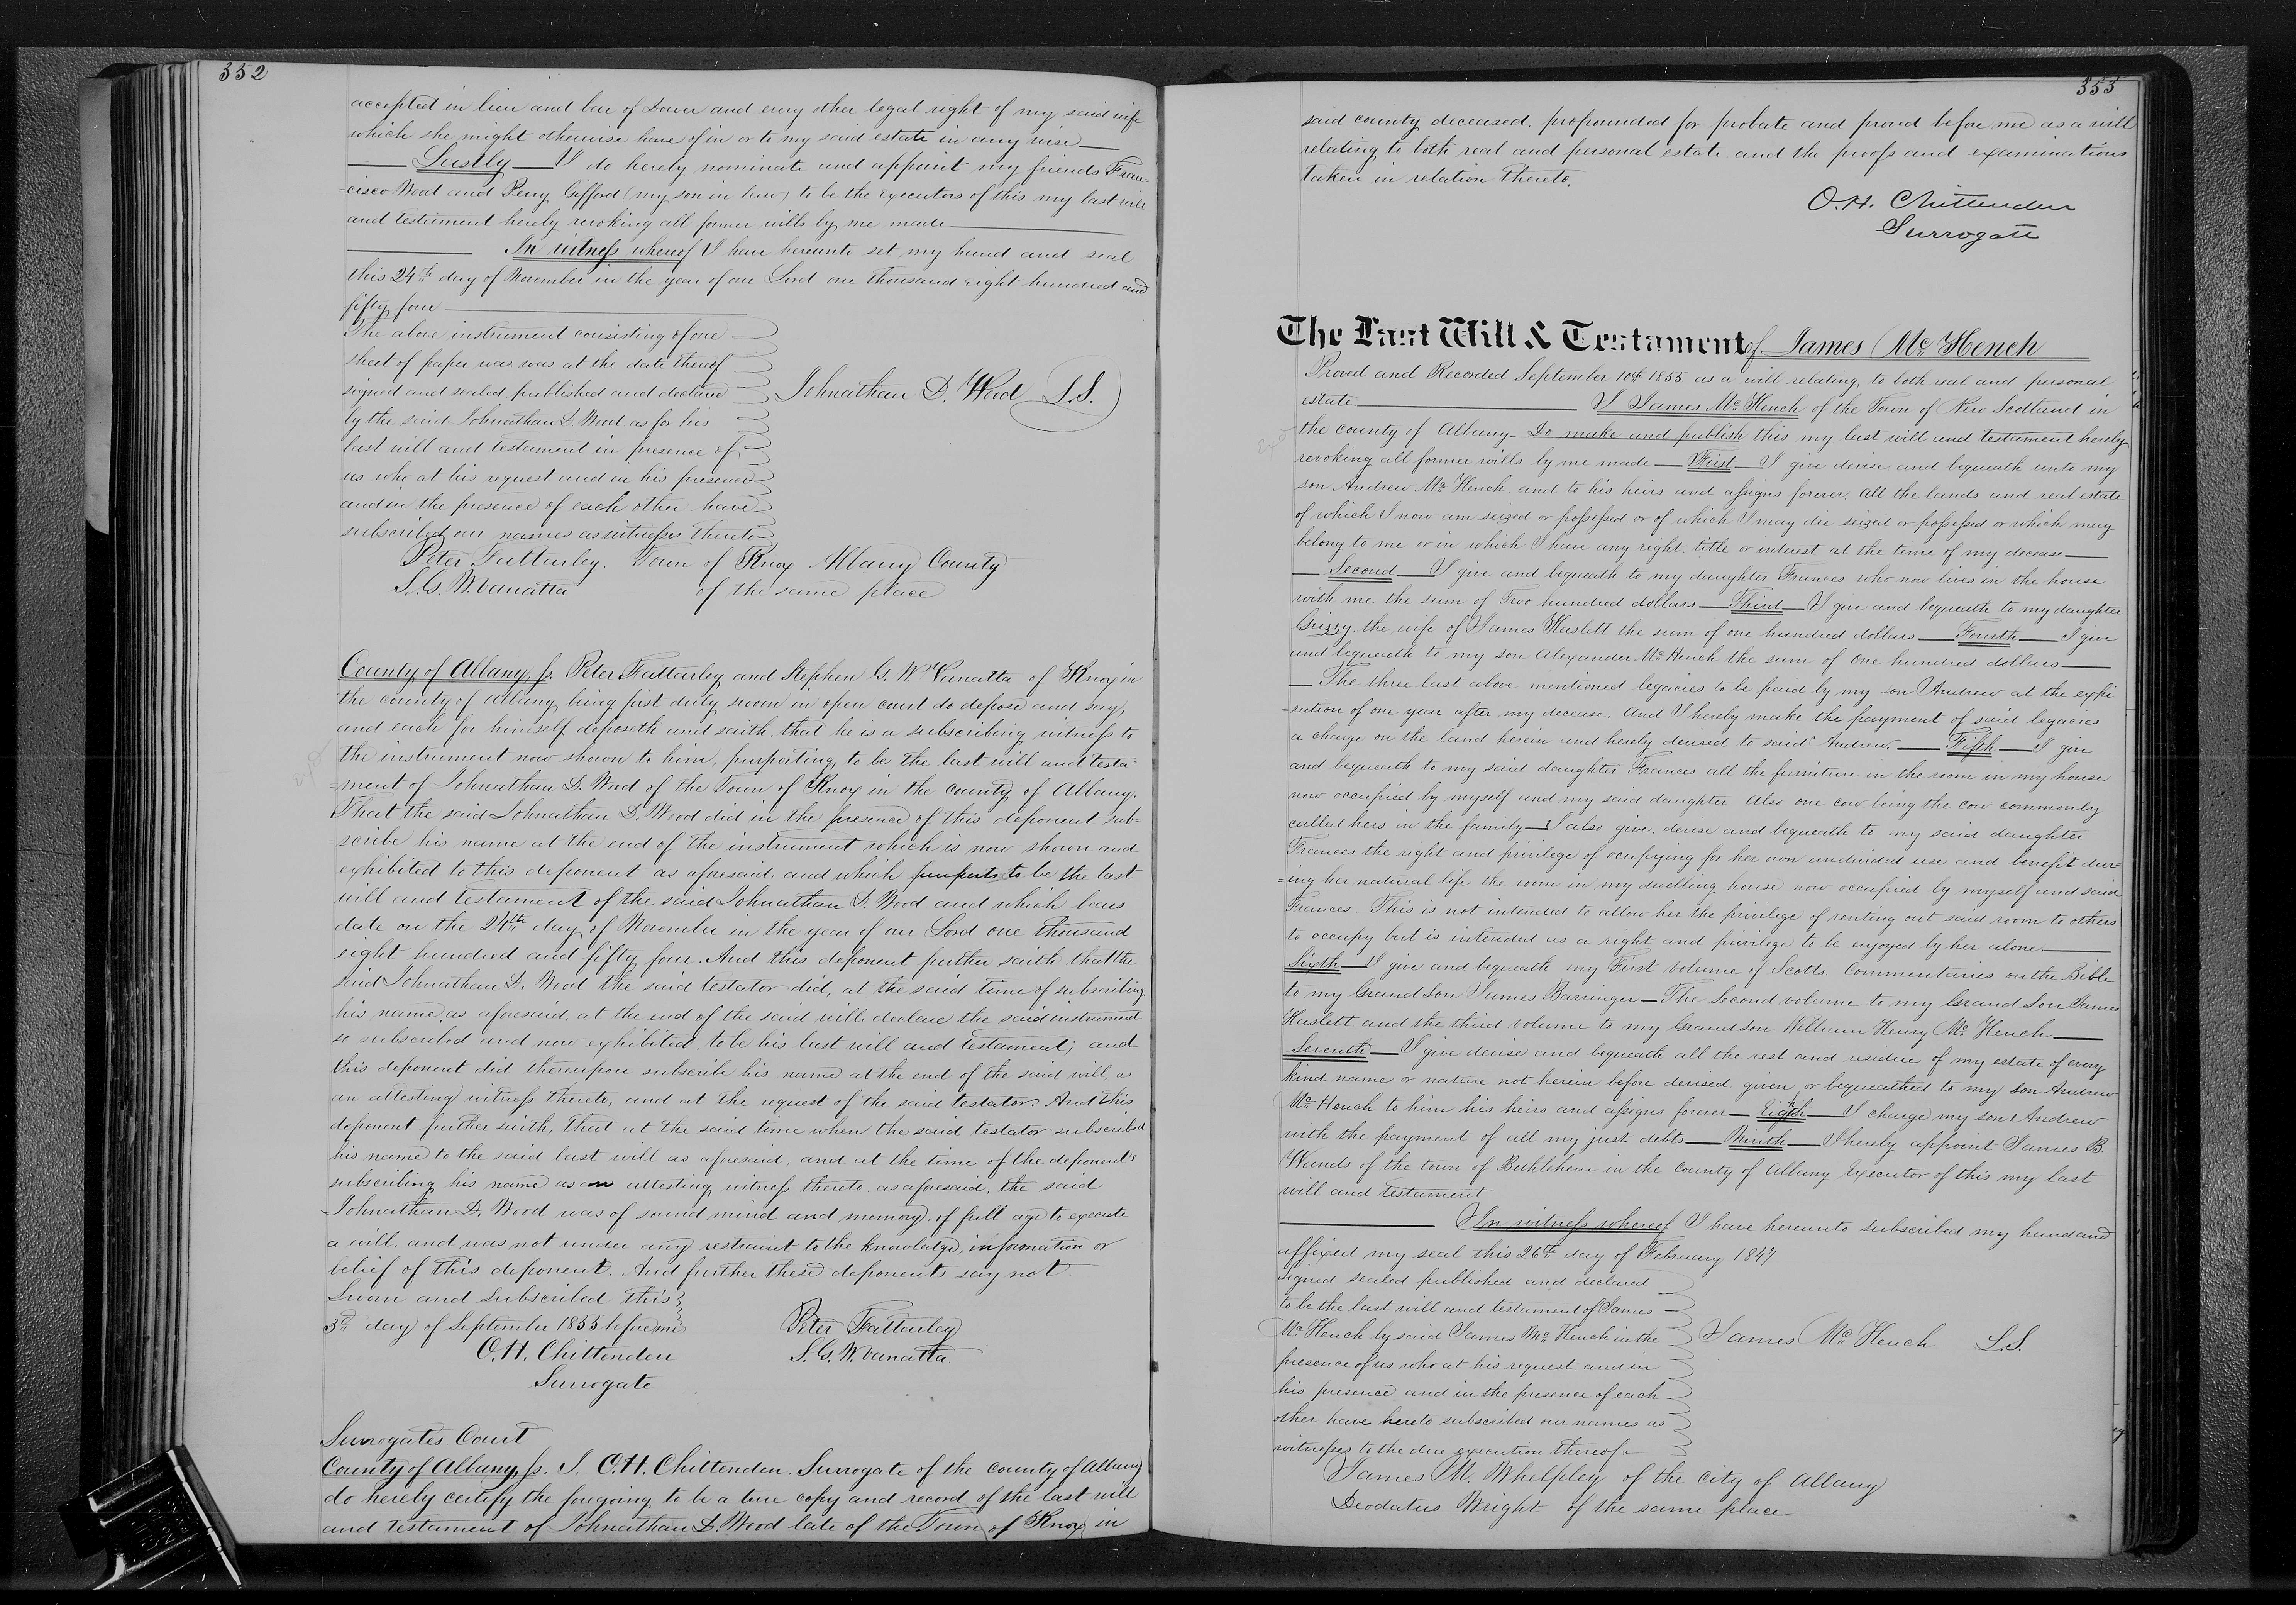 352
accepted in lieu and bar of Dower and every other legal right of my said wife
which she might otherwise have of in or to my said estate in any wise
Lastly I do hereby nominate and appoint my friends Fran=
=cisco Wood and Perry Gifford (my son in law) to be the executors of this my last will
and testament hereby revoking all former wills by me made
In witness whereof I have hereunto set my hand and seal
this 24th day of November in the year of our Lord one thousand eight hundred and
fifty four
The above instrument consisting of one
sheet of paper was was at the date thereof
signed and sealed published and declared
by the said Johnathan D. Wood as for his
last will and testament in presence of
us who at his request and in his presence
and in the presence of each other have
subscribed our names as witnesses thereto
Johnathan D. Wood L.S.
Peter Fattarley. Town of Knox Albany County
S. G. W. Vanatta of the same place
County of Albany ss. Peter Fattarley and Stephen G. W. Vanatta of Knox in
the county of Albany being first duly sworn in open court do depose and say,
and each for himself deposeth and saith, that he is a subscribing witness to
the instrument now shown to him, purporting to be the last will and testa=
=ment of Johnathan D. Wood of the Town of Knox in the county of Albany.
That the said Johnathan D. Wood did in the presence of this deponent sub=
scribe his name at the end of the instrument which is now shown and
exhibited to this deponent as aforesaid, and which purports to be the last
will and testament of the said Johnathan D. Wood and which bears
date on the 24th day of November in the year of our Lord one thousand
eight hundred and fifty four. And this deponent further saith that the
said Johnathan D. Wood the said testator did, at the said time of subscribing
his name as aforesaid, at the end of the said will declare the said instrument
so subscribed and now exhibited, to be his last will and testament; and
this deponent did thereupon subscribe his name at the end of the said will, as
an attesting witness thereto, and at the request of the said testator. And this
deponent further saith, that at the said time when the said testator subscribed
his name to the said last will as aforesaid, and at the time of the deponent's
subscribing his name as an attesting witness thereto, as aforesaid, the said
Johnathan D. Wood was of sound mind and memory, of full age to execute
a will, and was not under any restraint to the knowledge, information or
belief of this deponent. And further these deponents say not.
Sworn and subscribed this
3d day of September 1855 before me
O. H. Chittenden
Surrogate
Peter Fattarley
S. G. W. Vanatta
Surrogates Court
County of Albany ss. I, O. H. Chittenden. Surrogate of the county of Albany
do hereby certify the foregoing to be a true copy and record of the last will
and testament of Johnathan D. Wood late of the Town of Knox in
353
said county deceased, propounded for probate and proved before me as a will
relating to both real and personal estate and the proofs and examinations
taken in relation thereto.
O. H. Chittenden
Surrogate
The Last Will & Testament of James Mc Hench
Proved and Recorded September 10th 1855 as a will relating to both real and personal
estate I James Mc Hench of the Town of New Scotland in
the county of Albany Do make and publish this my last will and testament hereby
revoking all former wills by me made First I give devise and bequeath unto my
son Andrew Mc Hench and to his heirs and assigns forever, all the lands and real estate
of which I now am seized or possessed or of which I may die seized or possessed or which may
belong to me or in which I have any right, title or interest at the time of my decease
Second I give and bequeath to my daughter Frances who now lives in the house
with me the sum of Two hundred dollars Third I give and bequeath to my daughter
Grizzy the wife of James Haslett the sum of one hundred dollars Fourth I give
and bequeath to my son Alexander Mc Hench the sum of One hundred dollars
The three last above mentioned legacies to be paid by my son Andrew at the expi
=ration of one year after my decease. And I hereby make the payment of said legacies
a charge on the land herein and hereby devised to said Andrew. Fifth I give
and bequeath to my said daughter Frances all the furniture in the room in my house
now occupied by myself and my said daughter Also one cow being the cow commonly
called hers in the family I also give, devise and bequeath to my said daughter
Frances the right and privilege of ocupying for her own undivided use and benefit dur=
=ing her natural life the room in my dwelling house now occupied by myself and said
Frances. This is not intended to allow her the privilege of renting out said room to others
to occupy but is intended as a right and privilege to be enjoyed by her alone.
Sixth I give and bequeath my First volume of Scotts Commentaries on the Bible
to my Grand Son James Barringer The Second volume to my Grand Son James
Haslett and the third volume to my Grand son William Henry Mc Hench
Seventh I give devise and bequeath all the rest and residue of my estate of every
kind name or nature not herein before devised given or bequeathed to my son Andrew
Mc Hench to him his heirs and assigns forever Eighth I charge my son Andrew
with the payment of all my just debts Ninth I hereby appoint James B.
Wands of the town of Bethlehem in the County of Albany Executor of this my last
will and testament
In witness whereof I have hereunto subscribed my hand and
affixed my seal this 26th day of February 1847
Signed sealed published and declared
to be the last will and testament of James
Mc Hench by said James Mc Hench in the
presence of us who at his request and in
his presence and in the presence of each
other have hereto subscribed our names as
witnesses to the due execution thereof
James Mc Hench L.S.
James M. Whelpley of the City of Albany
Deodatus Wright of the same place